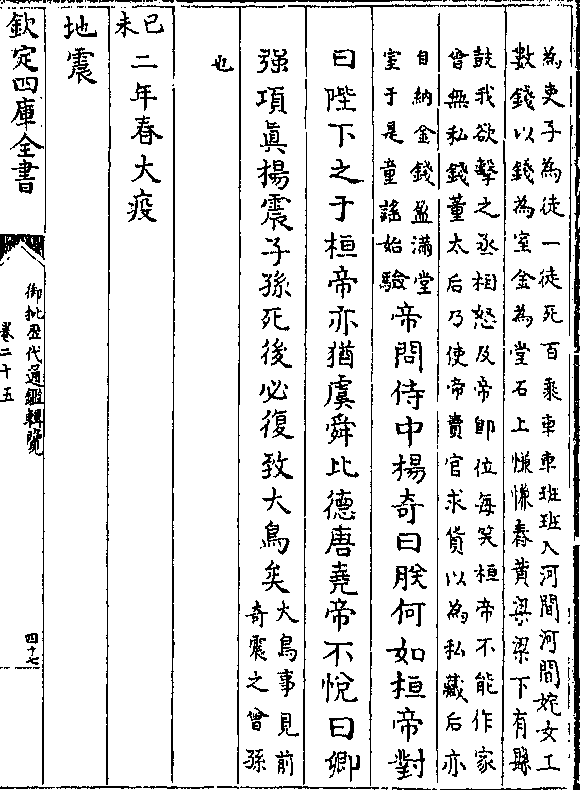 為吏子為徒一徒死百乘車車班班入河間河間姹女工
數錢以錢為室金為堂石上慊慊舂黄粱粱下有縣
鼓我欲擊之丞相怒及帝即位每笑桓帝不能作家
曾無私錢董太后乃使帝賣官求貨以為私藏后亦
自納金錢盈滿堂
室于是童謡始驗
帝問侍中楊奇曰朕何如桓帝對
曰陛下之于桓帝亦猶虞舜比德唐堯帝不悦曰卿
强項眞楊震子孫死後必復致大鳥矣
大鳥事見前
奇震之曾孫
也
己未
二年春大疫
地震
欽定四庫全書
御批歷代通鑑輯覽
卷二十五
四十七